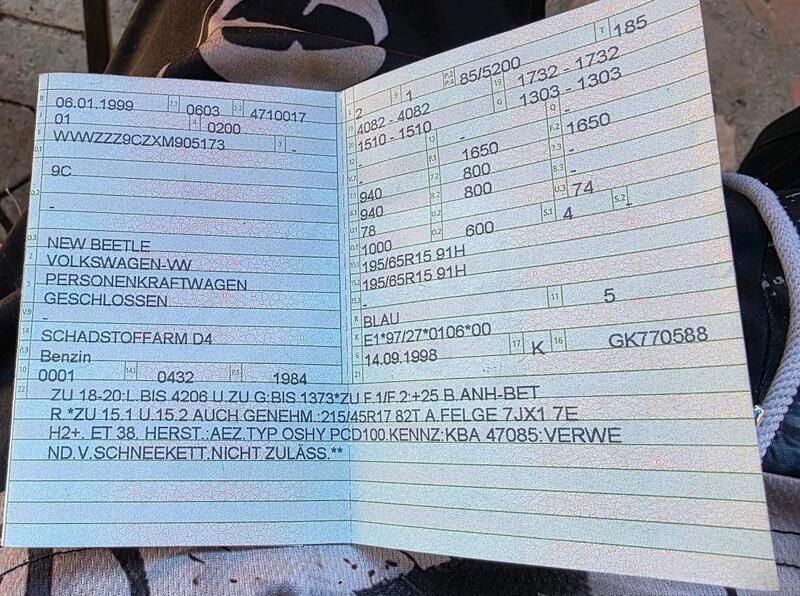 B 06.01.1999 2.1 0603 2.2 4710017
J 01 4 0200
E WVWZZZ9CZXM905173 3 -
D.1
9C
D.2
-
D.3 NEW BEETLE
2 VOLKSWAGEN-VW
5 PERSONENKRAFTWAGEN
GESCHLOSSEN
V.9 -
14 SCHADSTOFFARM D4
P.3 Benzin
10 0001 14.1 0432 P.1 1984
L 2 9 1 P.2 P.4 85/5200 T 185
18 4082 - 4082 19 1732 - 1732
20 1510 - 1510 G 1303 - 1303
12 - 13 - Q -
V.7 - F.1 1650 F.2 1650
7.1 940 7.2 800 7.3 -
8.1 940 8.2 800 8.3 -
U.1 78 U.2 - U.3 74
O.1 1000 O.2 600 S.1 4 S.2 -
15.1 195/65R15 91H
15.2 195/65R15 91H
15.3 -
R BLAU 11 5
K E1*97/27*0106*00
6 14.09.1998 17 K 16 GK770588
21
22 ZU 18-20:L.BIS 4206 U.ZU G:BIS 1373*ZU F.1/F.2:+25 B.ANH-BET
R.*ZU 15.1 U.15.2 AUCH GENEHM.:215/45R17 82T A.FELGE 7JX1 7E
H2+. ET 38. HERST.:AEZ.TYP OSHY PCD100.KENNZ:KBA 47085:VERWE
ND.V.SCHNEEKETT.NICHT ZULÄSS.**